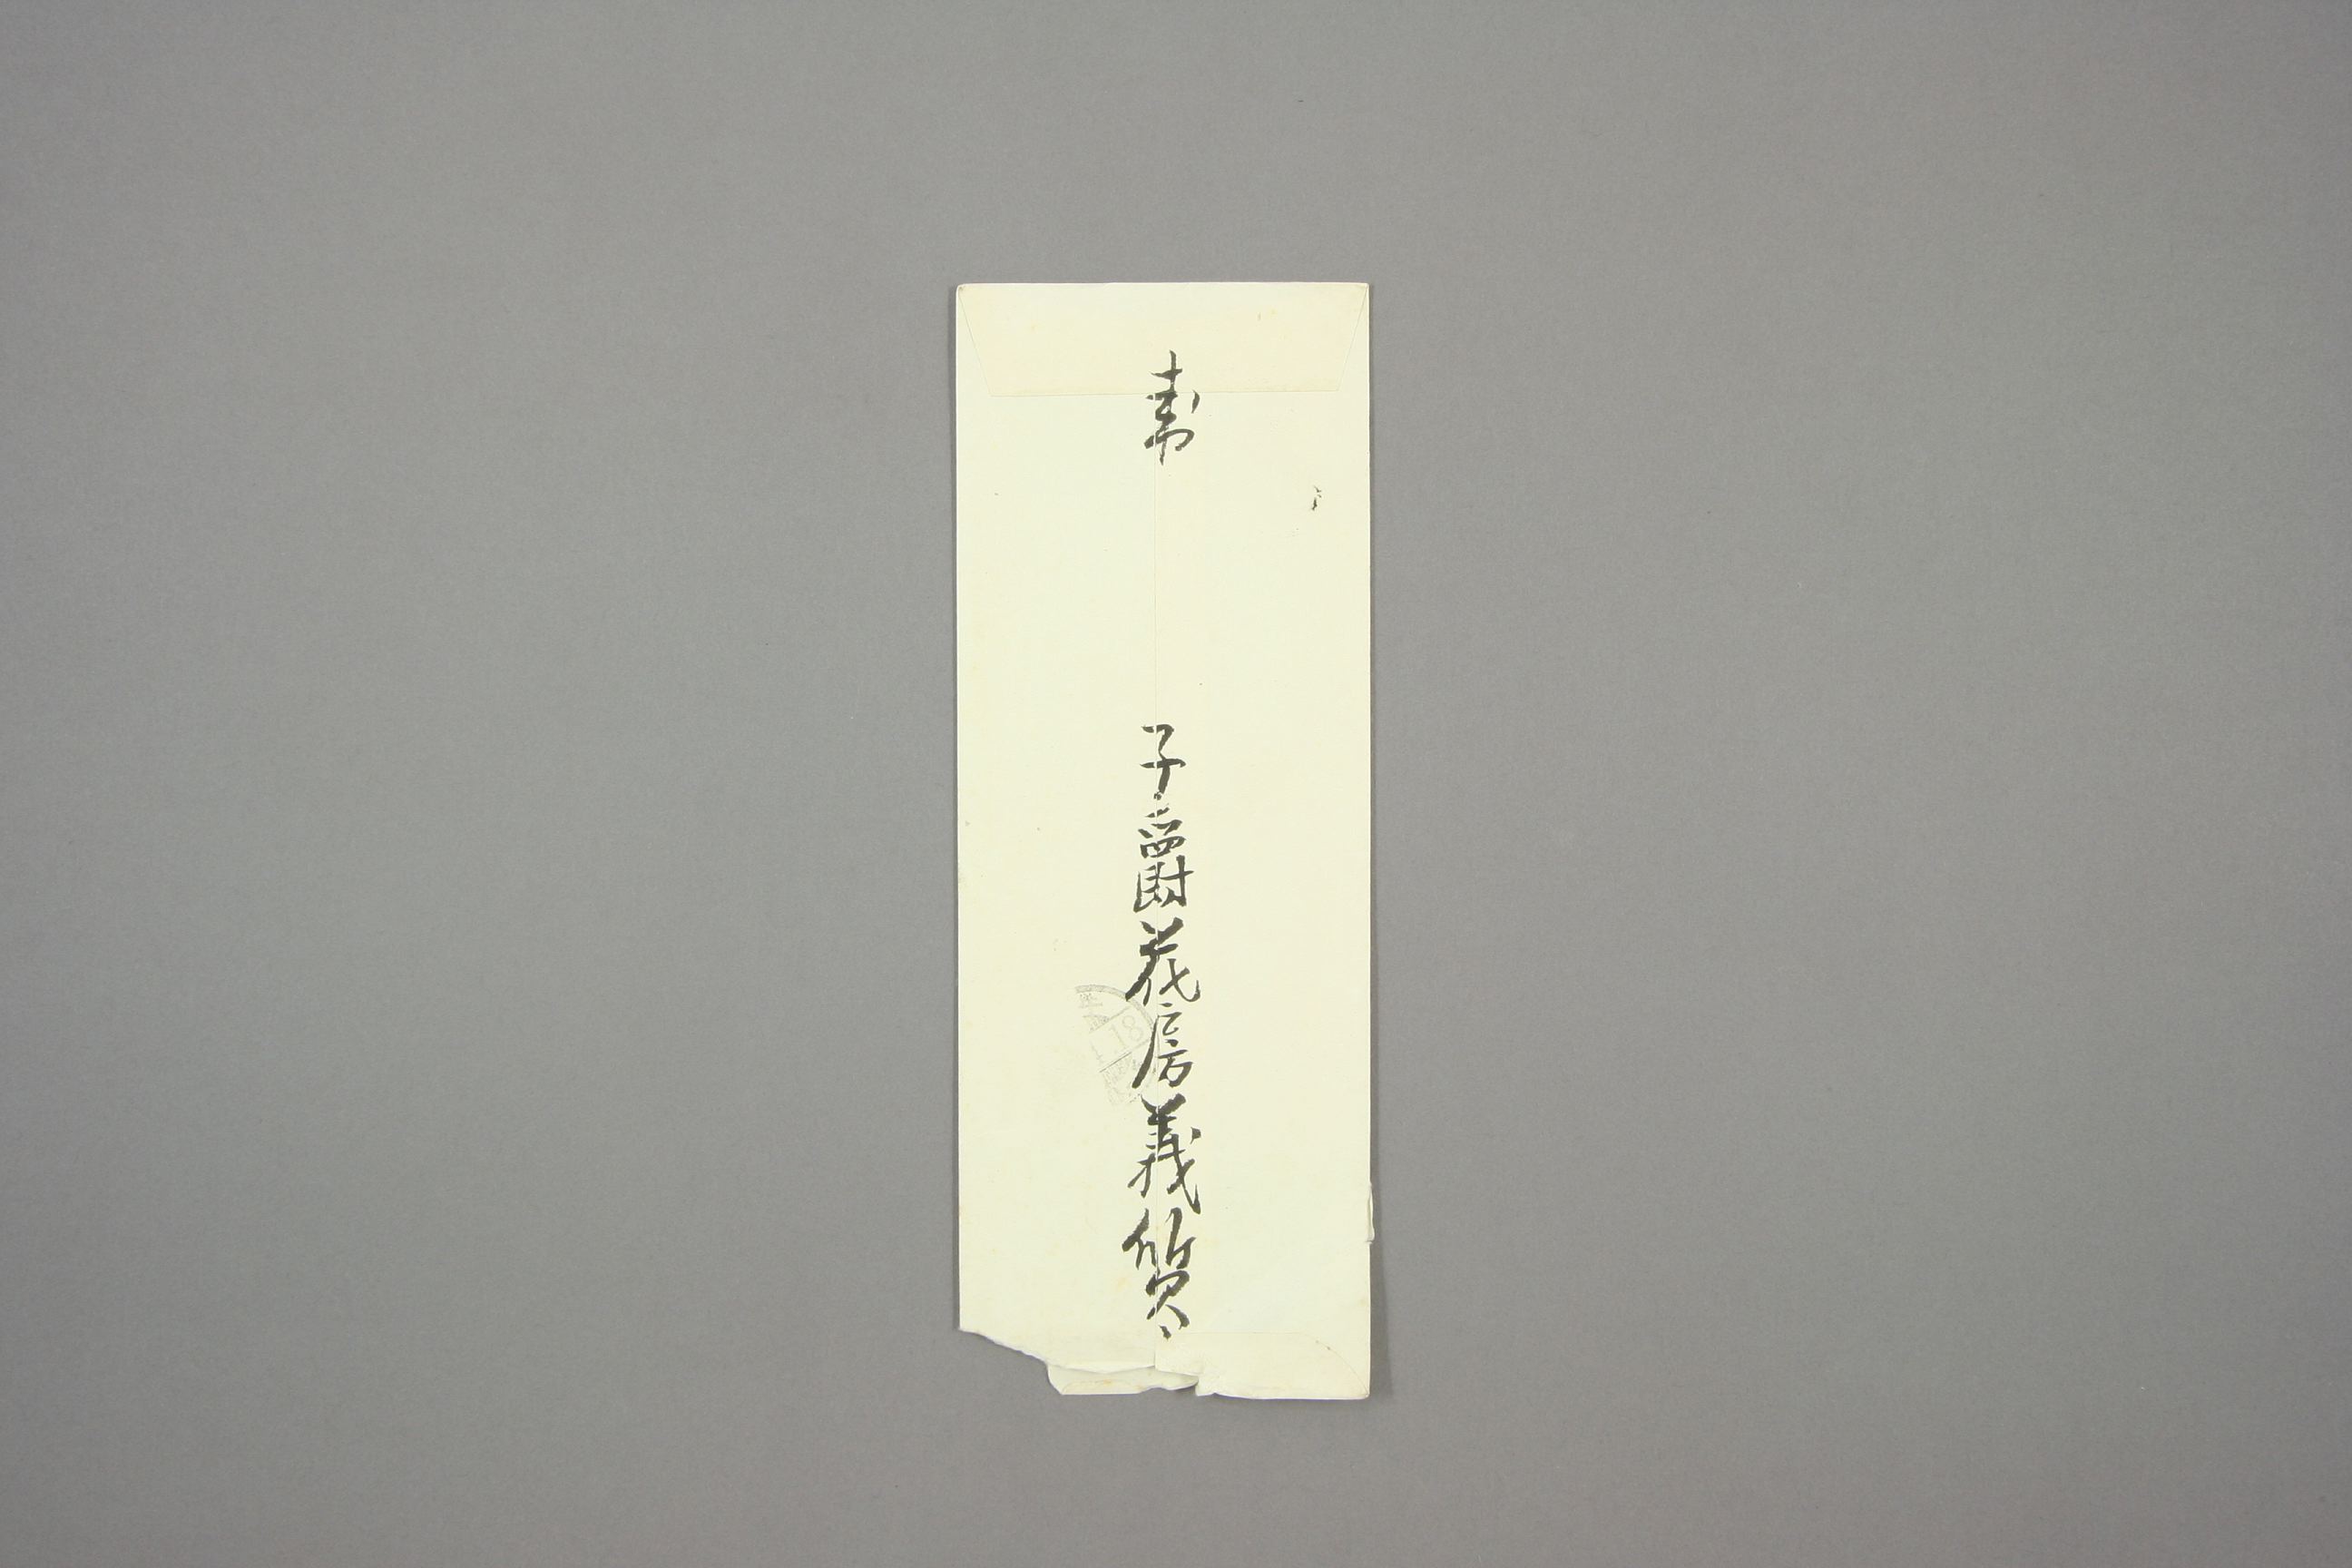 子爵花房義質
18